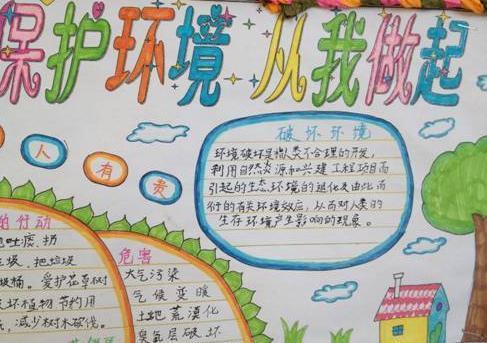 保护环境 从我做起
人有责
破坏环境
环境破坏是指人类不合理的开发,
利用自然资源和兴建工程项目而
引起的生态环境的退化及由此而
衍的有关环境效应,从而对人类的
生存环境产生影响的现象。
的行动
地吐痰、扔
垃圾、把垃圾
圾桶。爱护花草树
坏植物 节约用
减少树木砍伐。
危害
大气污染
气候变暖
土地荒漠化
臭氧层破坏